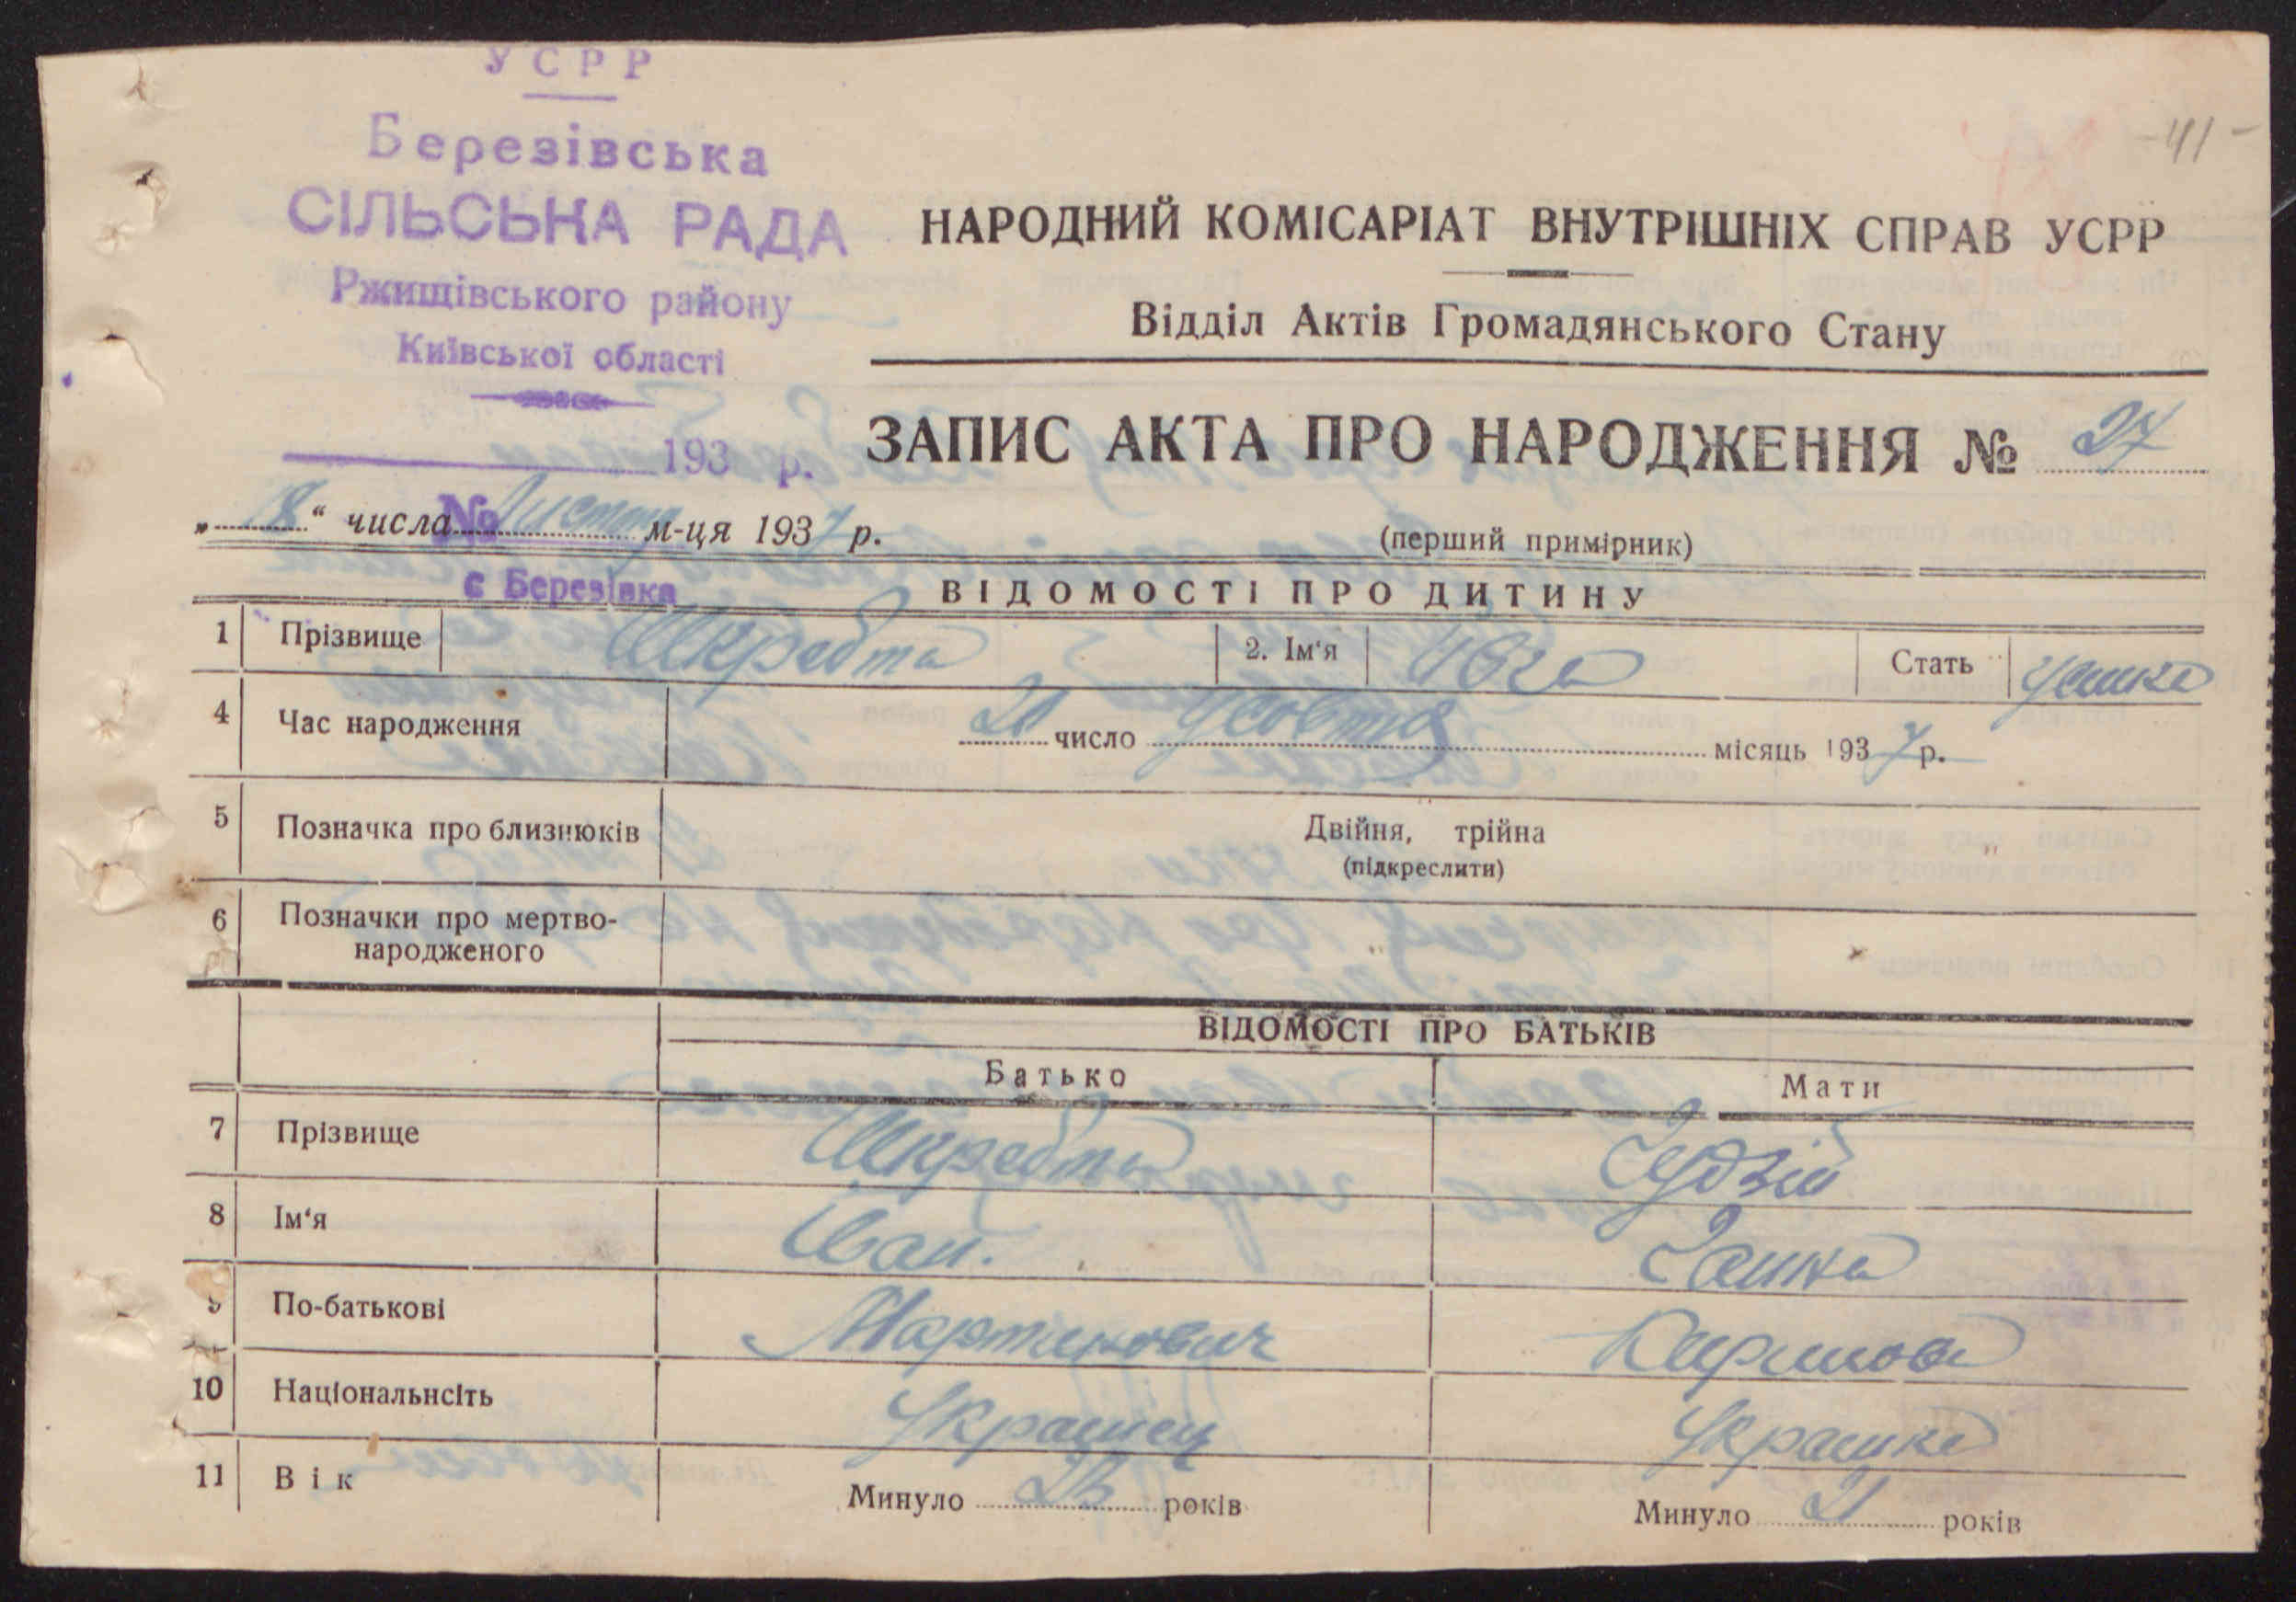 УСРР
Березівська
СІЛЬСЬКА РАДА
Ржищівського району
Київської області
193 р.
№
с Березівка
-41-
НАРОДНИЙ КОМІСАРІАТ ВНУТРІШНІХ СПРАВ УСРР
Відділ Актів Громадянського Стану
ЗАПИС АКТА ПРО НАРОДЖЕННЯ № 27
„18“ числа Листопа м-ця 1937 р.
(перший примірник)
ВІДОМОСТІ ПРО ДИТИНУ
1 Прізвище Шкребта 2. Ім'я Стать
4 Час народження 20 число Жовтня місяць 1937 р.
5 Позначка про близнюків Двійня, трійна
(підкреслити)
6 Позначки про мертво-
народженого
ВІДОМОСТІ ПРО БАТЬКІВ
Батько Мати
7 Прізвище Шкребта
8 Ім'я Іван. Ганна
9 По-батькові Мартинович
10 Національнсіть Українец Українка
11 Вік Минуло 23 років Минуло 21 років